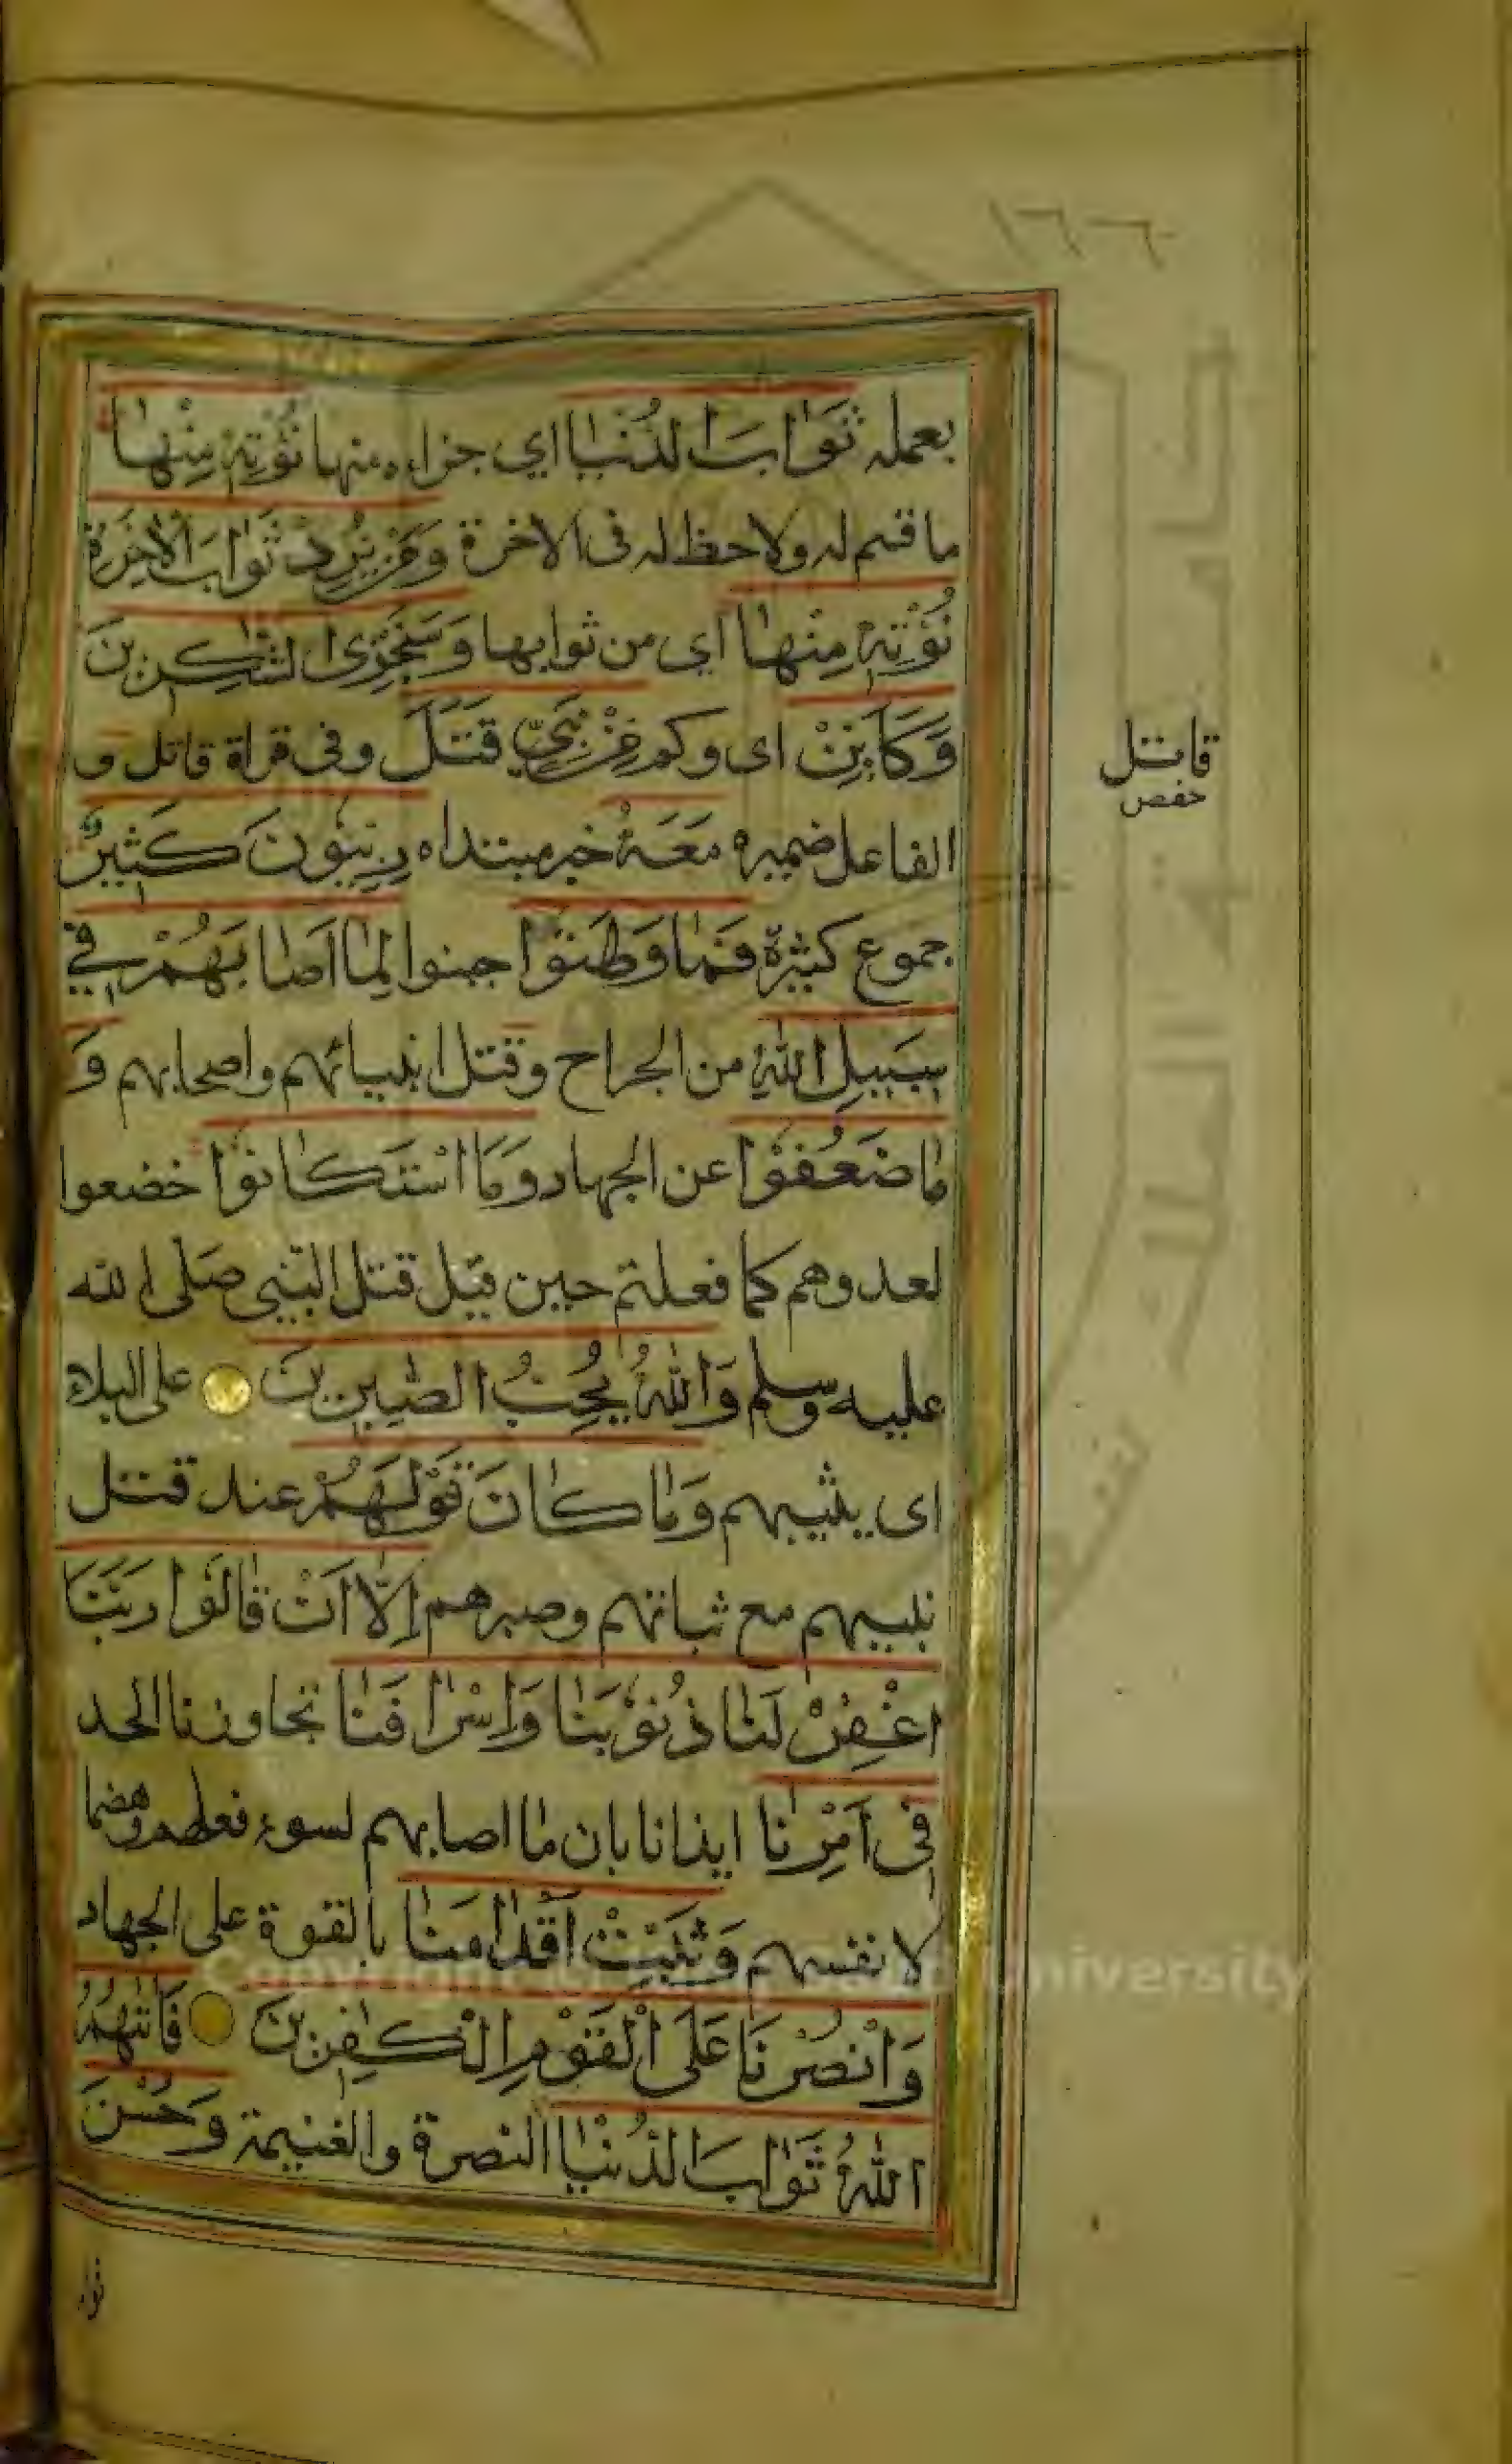 ١٦٦
بعمله ثَوَابَ الدُّنْيَا اي جزاءه منها نُؤْتِهٖ مِنْهَا
ما قسم له ولا حظ له فى الاخرة وَمَنْ يُرِدْ ثَوَابَ الْاٰخِرَةِ
نُؤْتِهٖ مِنْهَا اي من ثوابها وَسَنَجْزِى الشّٰكِرِينَ
وَكَاَيِّنْ اى وكم مِنْ نَبِيٍّ قُتِلَ وفى قراة قاتل و
الفاعل ضميره مَعَهُ خبر مبتداه رِبِّيُّونَ كَثِيرٌ
جموع كثيرة فَمَا وَهَنُوا جبنوا لِمَا اَصَابَهُمْ فِي
سَبِيلِ اللّٰهِ من الجراح وقتل انبيائهم واصحابهم وَ
مَا ضَعُفُوا عن الجهاد وَمَا اسْتَكَانُوا خضعوا
لعدوهم كما فعلتم حين قيل قتل النبى صلى الله
عليه وسلم وَاللّٰهُ يُحِبُّ الصّٰبِرِينَ على البلاء
اى يثيبهم وَمَا كَانَ قَوْلَهُمْ عند قتل
نبيهم مع ثباتهم وصبرهم اِلَّا اَنْ قَالُوا رَبَّنَا
اغْفِرْ لَنَا ذُنُوبَنَا وَاِسْرَافَنَا تجاوزنا الحد
فِى اَمْرِنَا ايذانا بان ما اصابهم لسوء فعلهم وهضما
لانفسهم وَثَبِّتْ اَقْدَامَنَا بالقوة على الجهاد
وَانْصُرْنَا عَلَى الْقَوْمِ الْكٰفِرِينَ فَاٰتٰهُمُ
اللّٰهُ ثَوَابَ الدُّنْيَا النصرة والغنيمة وَحُسْنَ
ثوا
قاتل
حفص
University